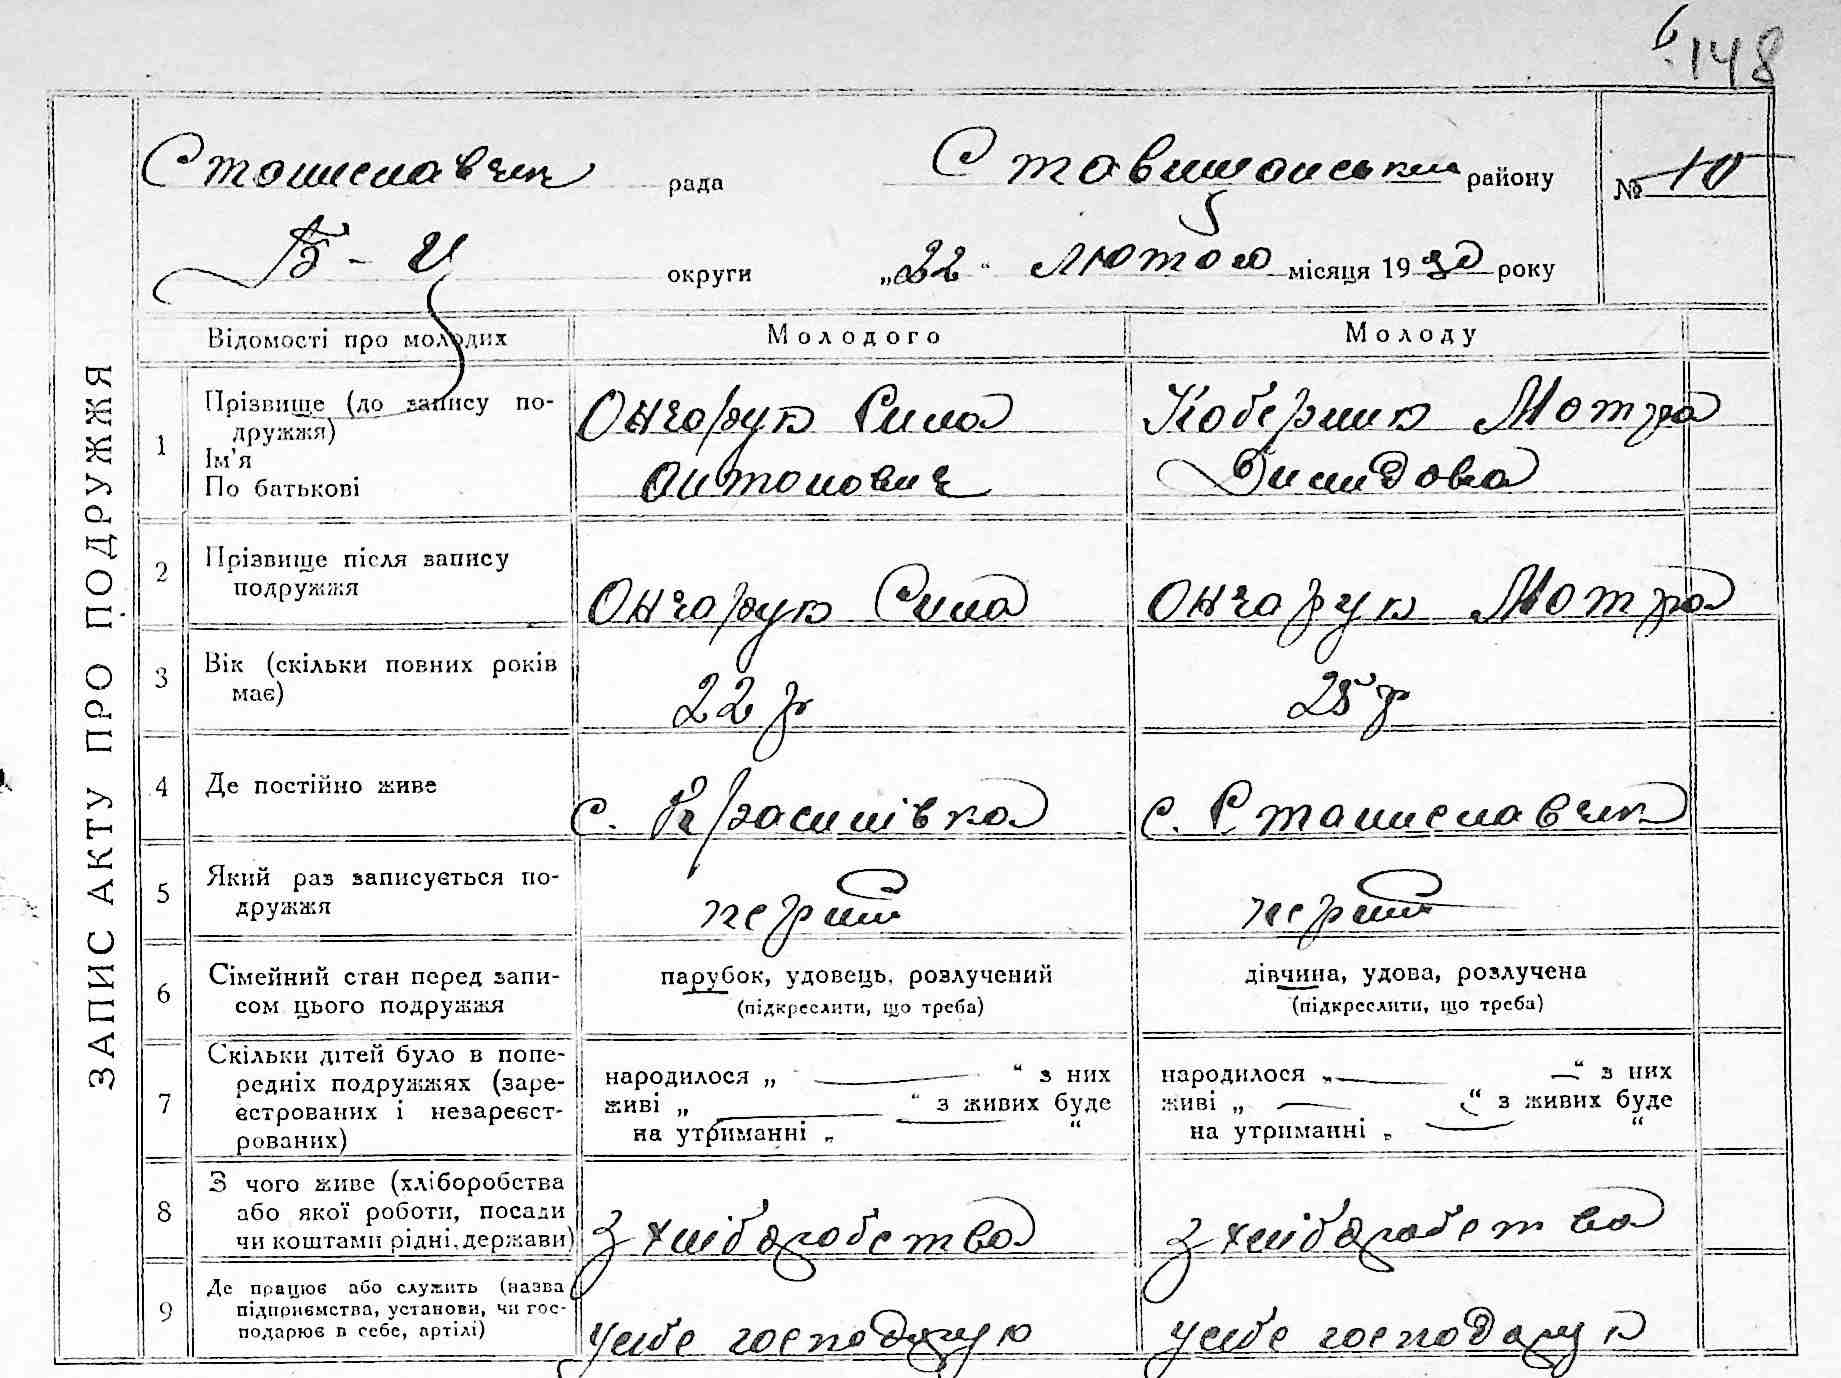 148
Станиславчик рада Ставищанськ району № 10
Б-Ц округи „22“ лютого місяця 1930 року
ЗАПИС АКТУ ПРО ПОДРУЖЖЯ
Відомості про молодих Молодого Молоду
1 Прізвище (до запису по-
дружжя)
Ім'я
По батькові
Ончарук Сила
Антонович
Коберник Мотра
Димидова
2 Прізвище після запису
подружжя
Ончарук Сила
Ончарук Мотра
3 Вік (скільки повних років
має)
22 р
25 р
4 Де постійно живе
с. Красилівка
с. Станиславчик
5 Який раз записується по-
дружжя
перший
перший
6 Сімейний стан перед запи-
сом цього подружжя
парубок, удовець, розлучений
(підкреслити, що треба)
дівчина, удова, розлучена
(підкреслити, що треба)
7 Скільки дітей було в попе-
редніх подружжях (заре-
єстрованих і незареєст-
рованих)
народилося „ — “ з них
живі „ — “ з живих буде
на утриманні „ — “
народилося „ — “ з них
живі „ — “ з живих буде
на утриманні „ — “
8 З чого живе (хліборобства
або якої роботи, посади
чи коштами рідні, держави)
З хліборобства
З хліборобства
9 Де працює або служить (назва
підприємства, установи, чи гос-
подарює в себе, артілі)
у себе господарую
у себе господарую